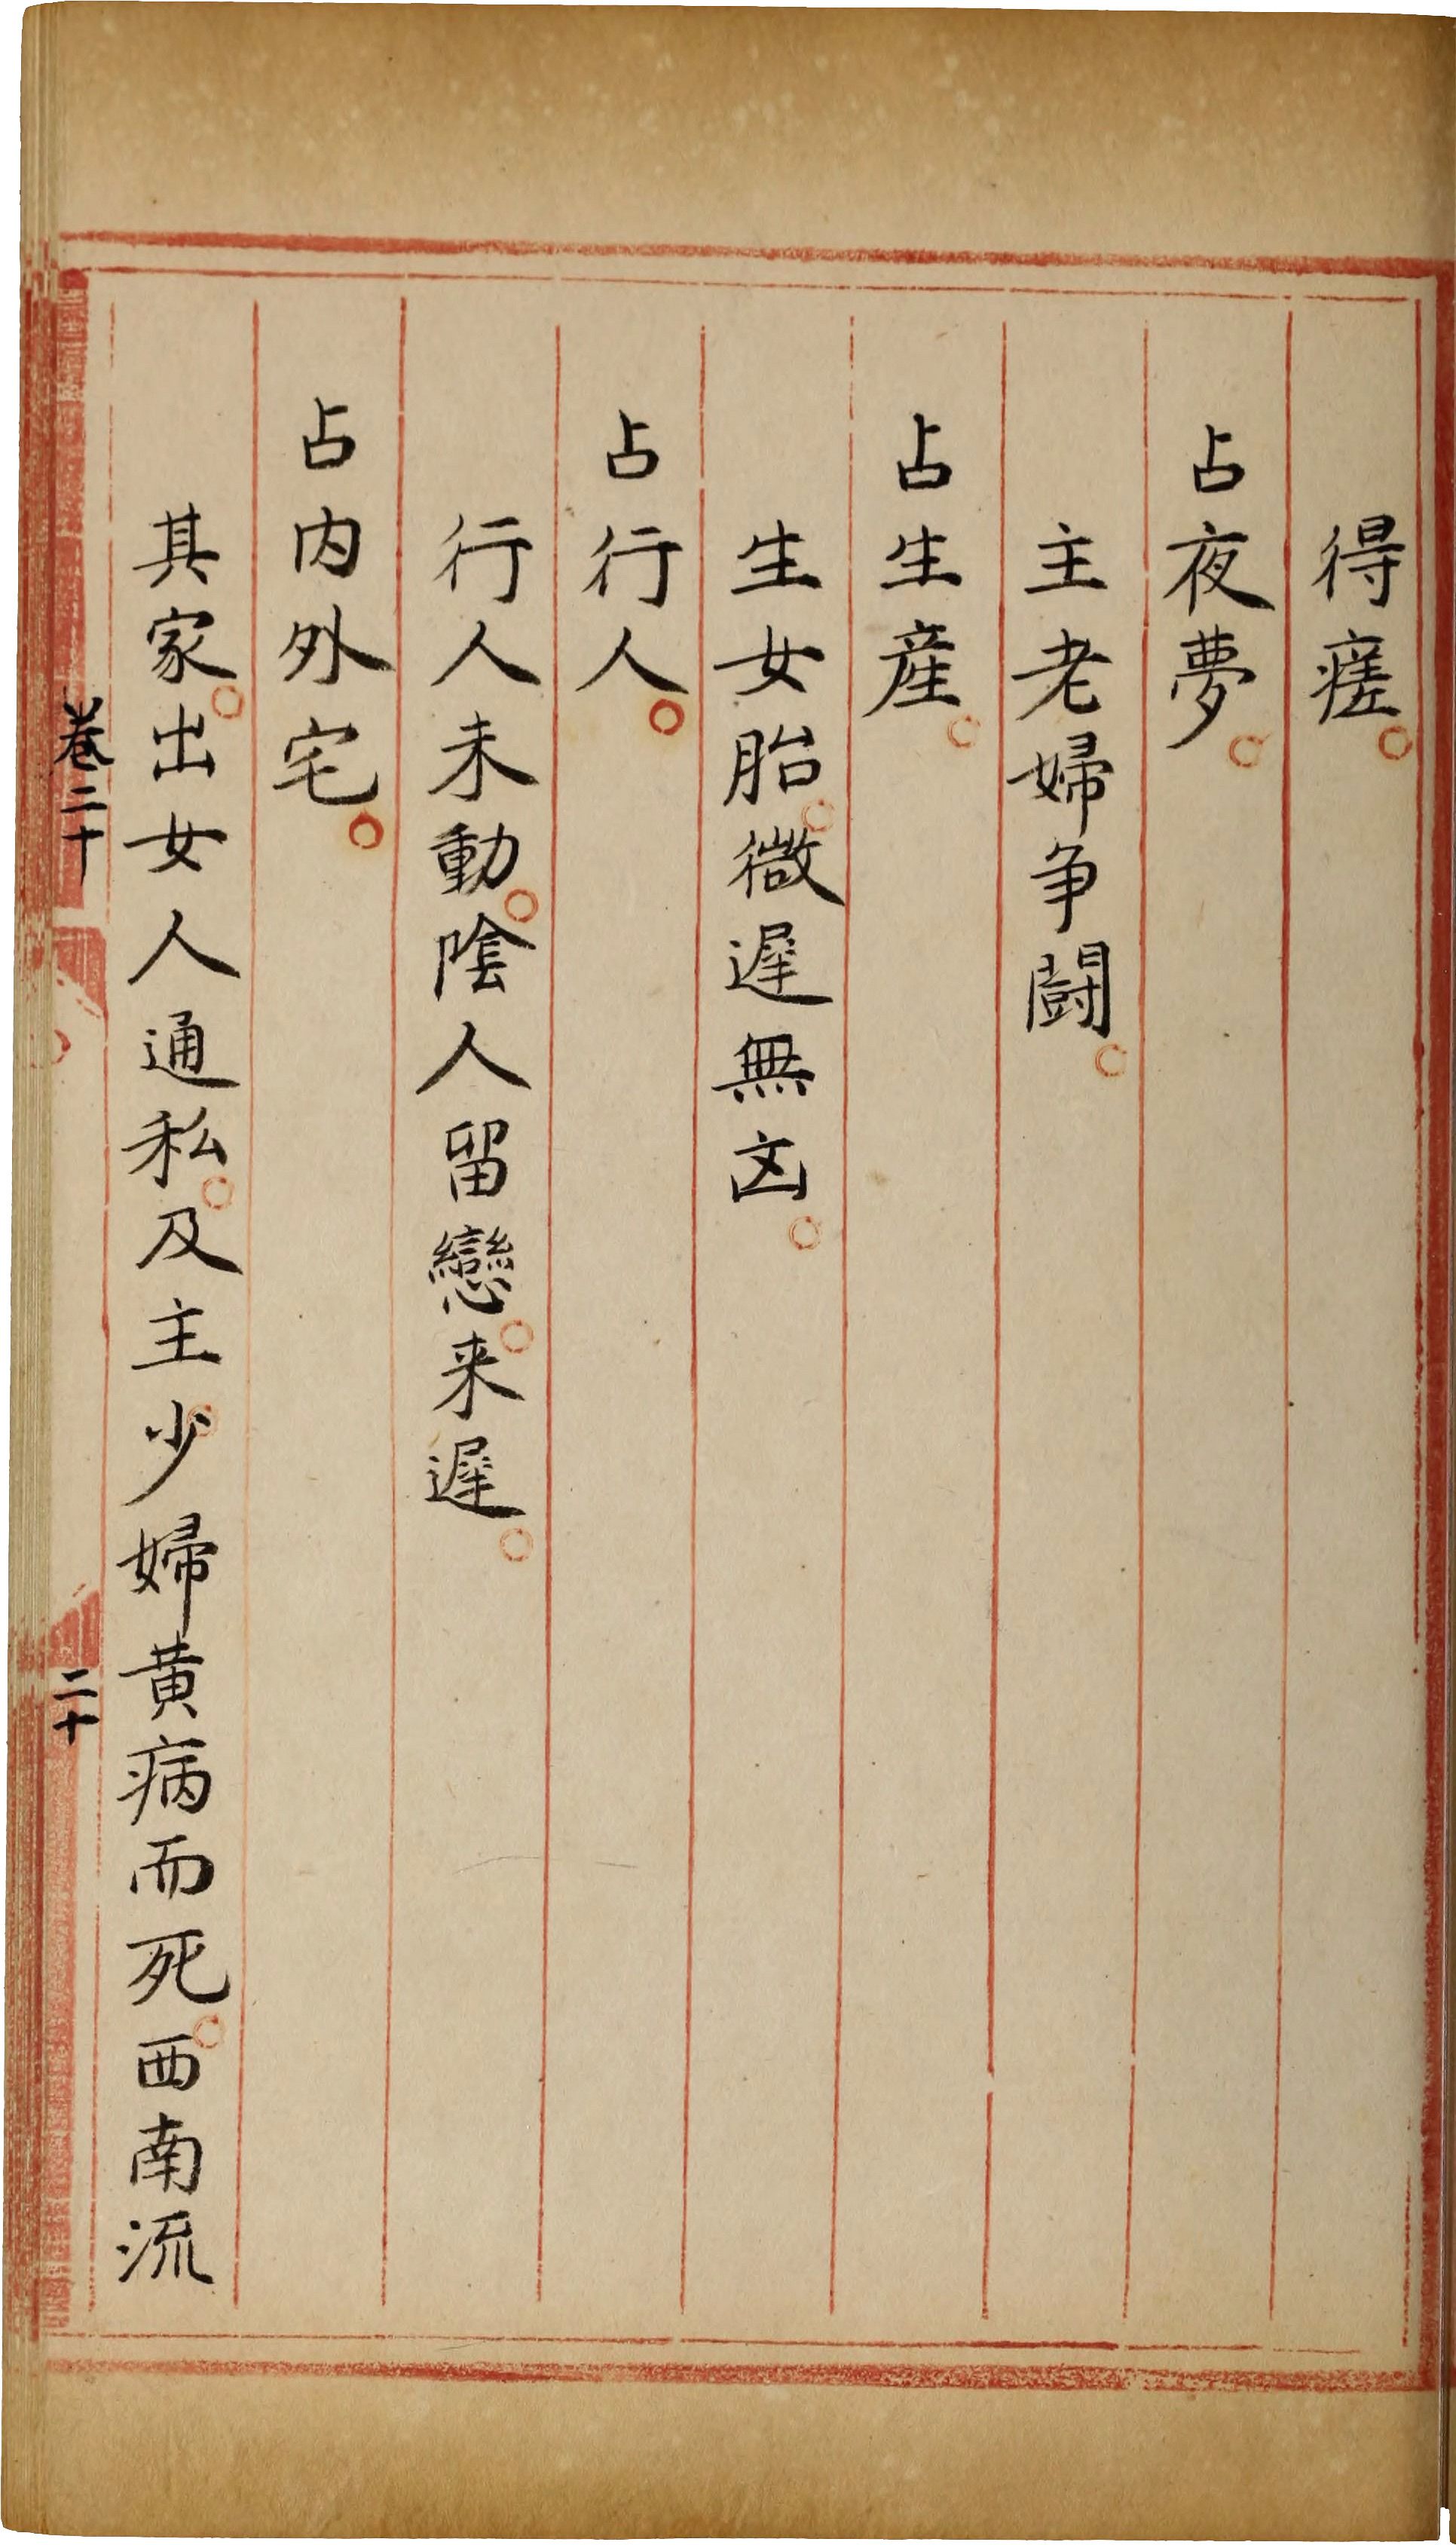 得瘥。
占夜夢。
主老婦争鬪。
占生產。
生女胎。微遲無凶。
占行人。
行人未動。陰人留戀。来遲。
占内外宅。
其家。出女人通私。及主少。婦黄病而死。西南流
卷二十
二十